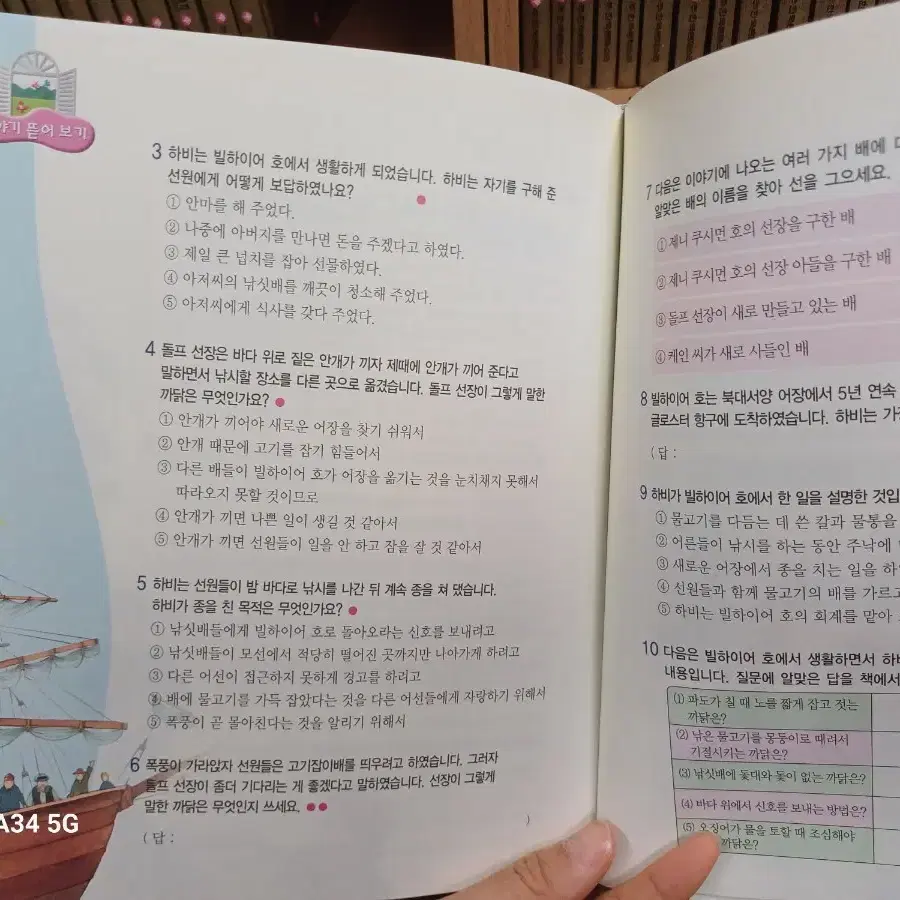 뜯어 보기
3 하비는 빌하이어 호에서 생활하게 되었습니다. 하비는 자기를 구해 준
선원에게 어떻게 보답하였나요?
① 안마를 해 주었다.
② 나중에 아버지를 만나면 돈을 주겠다고 하였다.
③ 제일 큰 넙치를 잡아 선물하였다.
④ 아저씨의 낚싯배를 깨끗이 청소해 주었다.
⑤ 아저씨에게 식사를 갖다 주었다.
4 돌프 선장은 바다 위로 짙은 안개가 끼자 제때에 안개가 끼어 준다고
말하면서 낚시할 장소를 다른 곳으로 옮겼습니다. 돌프 선장이 그렇게 말한
까닭은 무엇인가요?
① 안개가 끼어야 새로운 어장을 찾기 쉬워서
② 안개 때문에 고기를 잡기 힘들어서
③ 다른 배들이 빌하이어 호가 어장을 옮기는 것을 눈치채지 못해서
따라오지 못할 것이므로
④ 안개가 끼면 나쁜 일이 생길 것 같아서
⑤ 안개가 끼면 선원들이 일을 안 하고 잠을 잘 것 같아서
5 하비는 선원들이 밤 바다로 낚시를 나간 뒤 계속 종을 쳐 댔습니다.
하비가 종을 친 목적은 무엇인가요?
① 낚싯배들에게 빌하이어 호로 돌아오라는 신호를 보내려고
② 낚싯배들이 모선에서 적당히 떨어진 곳까지만 나아가게 하려고
③ 다른 어선이 접근하지 못하게 경고를 하려고
④ 배에 물고기를 가득 잡았다는 것을 다른 어선들에게 자랑하기 위해서
⑤ 폭풍이 곧 몰아친다는 것을 알리기 위해서
6 폭풍이 가라앉자 선원들은 고기잡이배를 띄우려고 하였습니다. 그러자
돌프 선장이 좀더 기다리는 게 좋겠다고 말하였습니다. 선장이 그렇게
말한 까닭은 무엇인지 쓰세요.
(답 : )
A34 5G
7 다음은 이야기에 나오는 여러 가지 배에
알맞은 배의 이름을 찾아 선을 그으세요.
① 제니 쿠시먼 호의 선장을 구한 배
② 제니 쿠시먼 호의 선장 아들을 구한 배
③ 돌프 선장이 새로 만들고 있는 배
④ 케인 씨가 새로 사들인 배
8 빌하이어 호는 북대서양 어장에서 5년 연속
글로스터 항구에 도착하였습니다. 하비는
(답 :
9 하비가 빌하이어 호에서 한 일을 설명한
① 물고기를 다듬는 데 쓴 칼과 물통을
② 어른들이 낚시를 하는 동안 주낙에
③ 새로운 어장에서 종을 치는 일을
④ 선원들과 함께 물고기의 배를 가르고
⑤ 하비는 빌하이어 호의 회계를 맡아
10 다음은 빌하이어 호에서 생활하면서
내용입니다. 질문에 알맞은 답을 책에서
(1) 파도가 칠 때 노를 짧게 잡고 젓는
까닭은?
(2) 낚은 물고기를 몽둥이로 때려서
기절시키는 까닭은?
(3) 낚싯배에 돛대와 돛이 없는 까닭은?
(4) 바다 위에서 신호를 보내는 방법은?
(5) 오징어가 물을 토할 때 조심해야
까닭은?